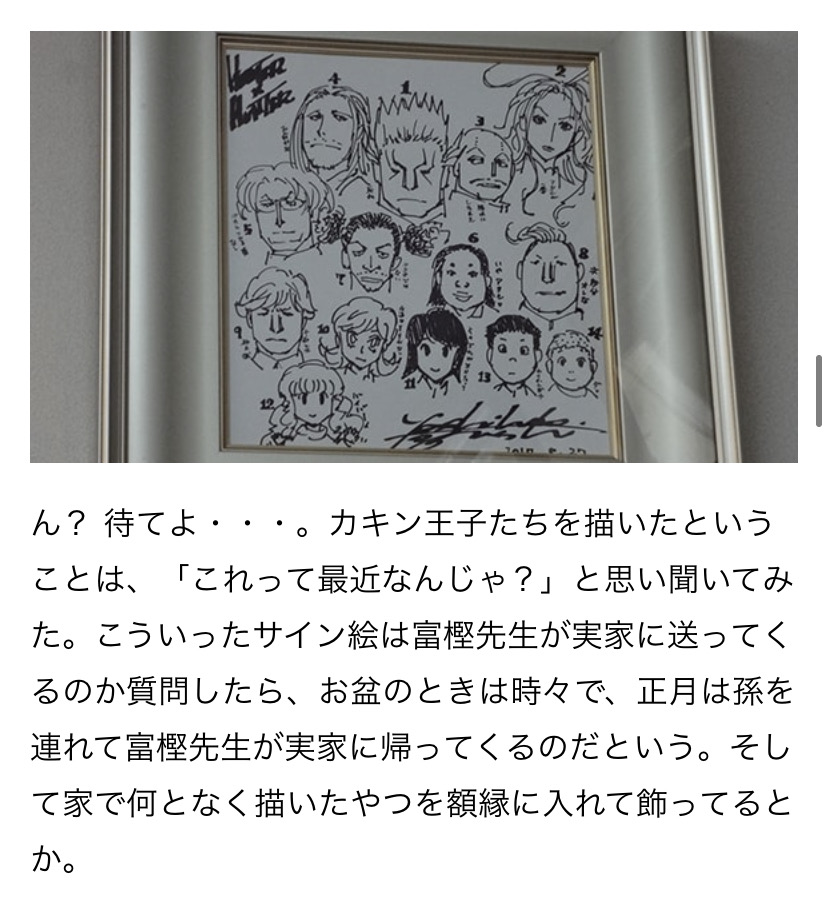 HUNTER
×
HUNTER
4
1
2
3
5
7
6
8
9
10
11
13
14
12
ん？ 待てよ・・・。カキン王子たちを描いたという
ことは、「これって最近なんじゃ？」と思い聞いてみ
た。こういったサイン絵は富樫先生が実家に送ってく
るのか質問したら、お盆のときは時々で、正月は孫を
連れて富樫先生が実家に帰ってくるのだという。そし
て家で何となく描いたやつを額縁に入れて飾ってると
か。